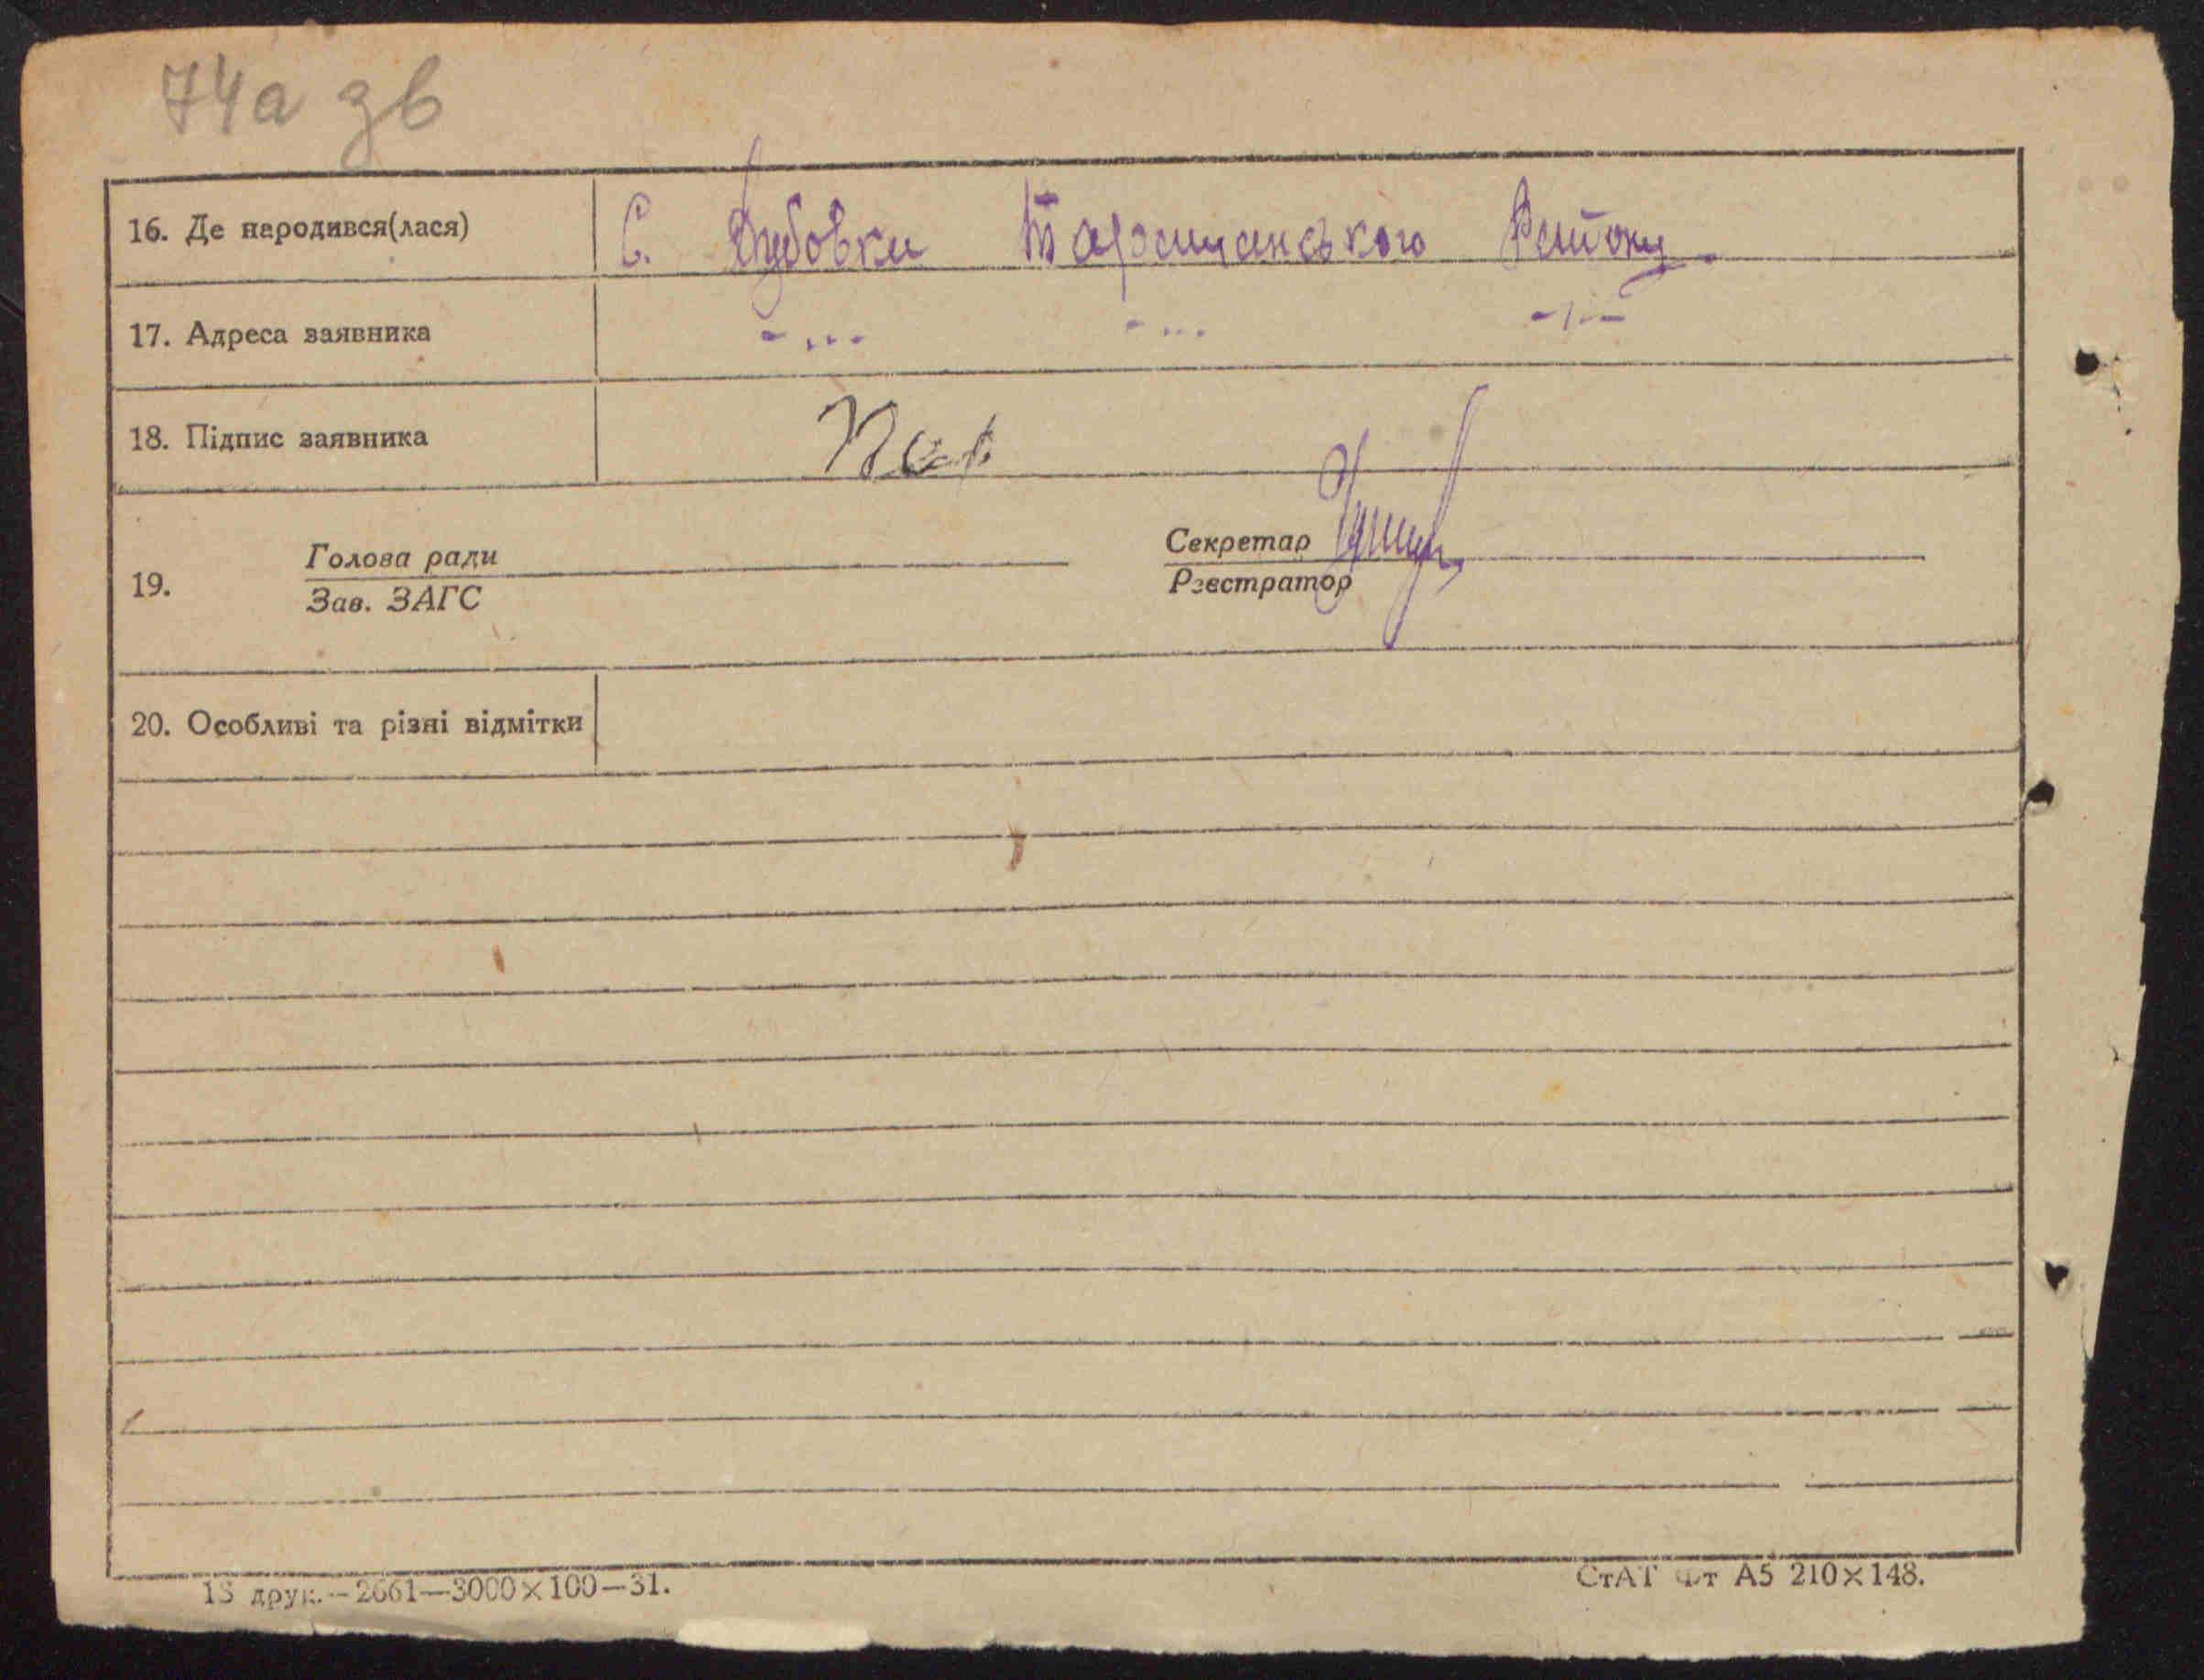 74а зв
16. Де народився(лася) С. Дубовки Таращанського Району.
17. Адреса заявника -„- -„- -„-
18. Підпис заявника
19. Голова ради Секретар
Зав. ЗАГС Реєстратор
20. Особливі та різні відмітки
13 друк.—2661—3000×100—31. СтАТ Фт А5 210×148.